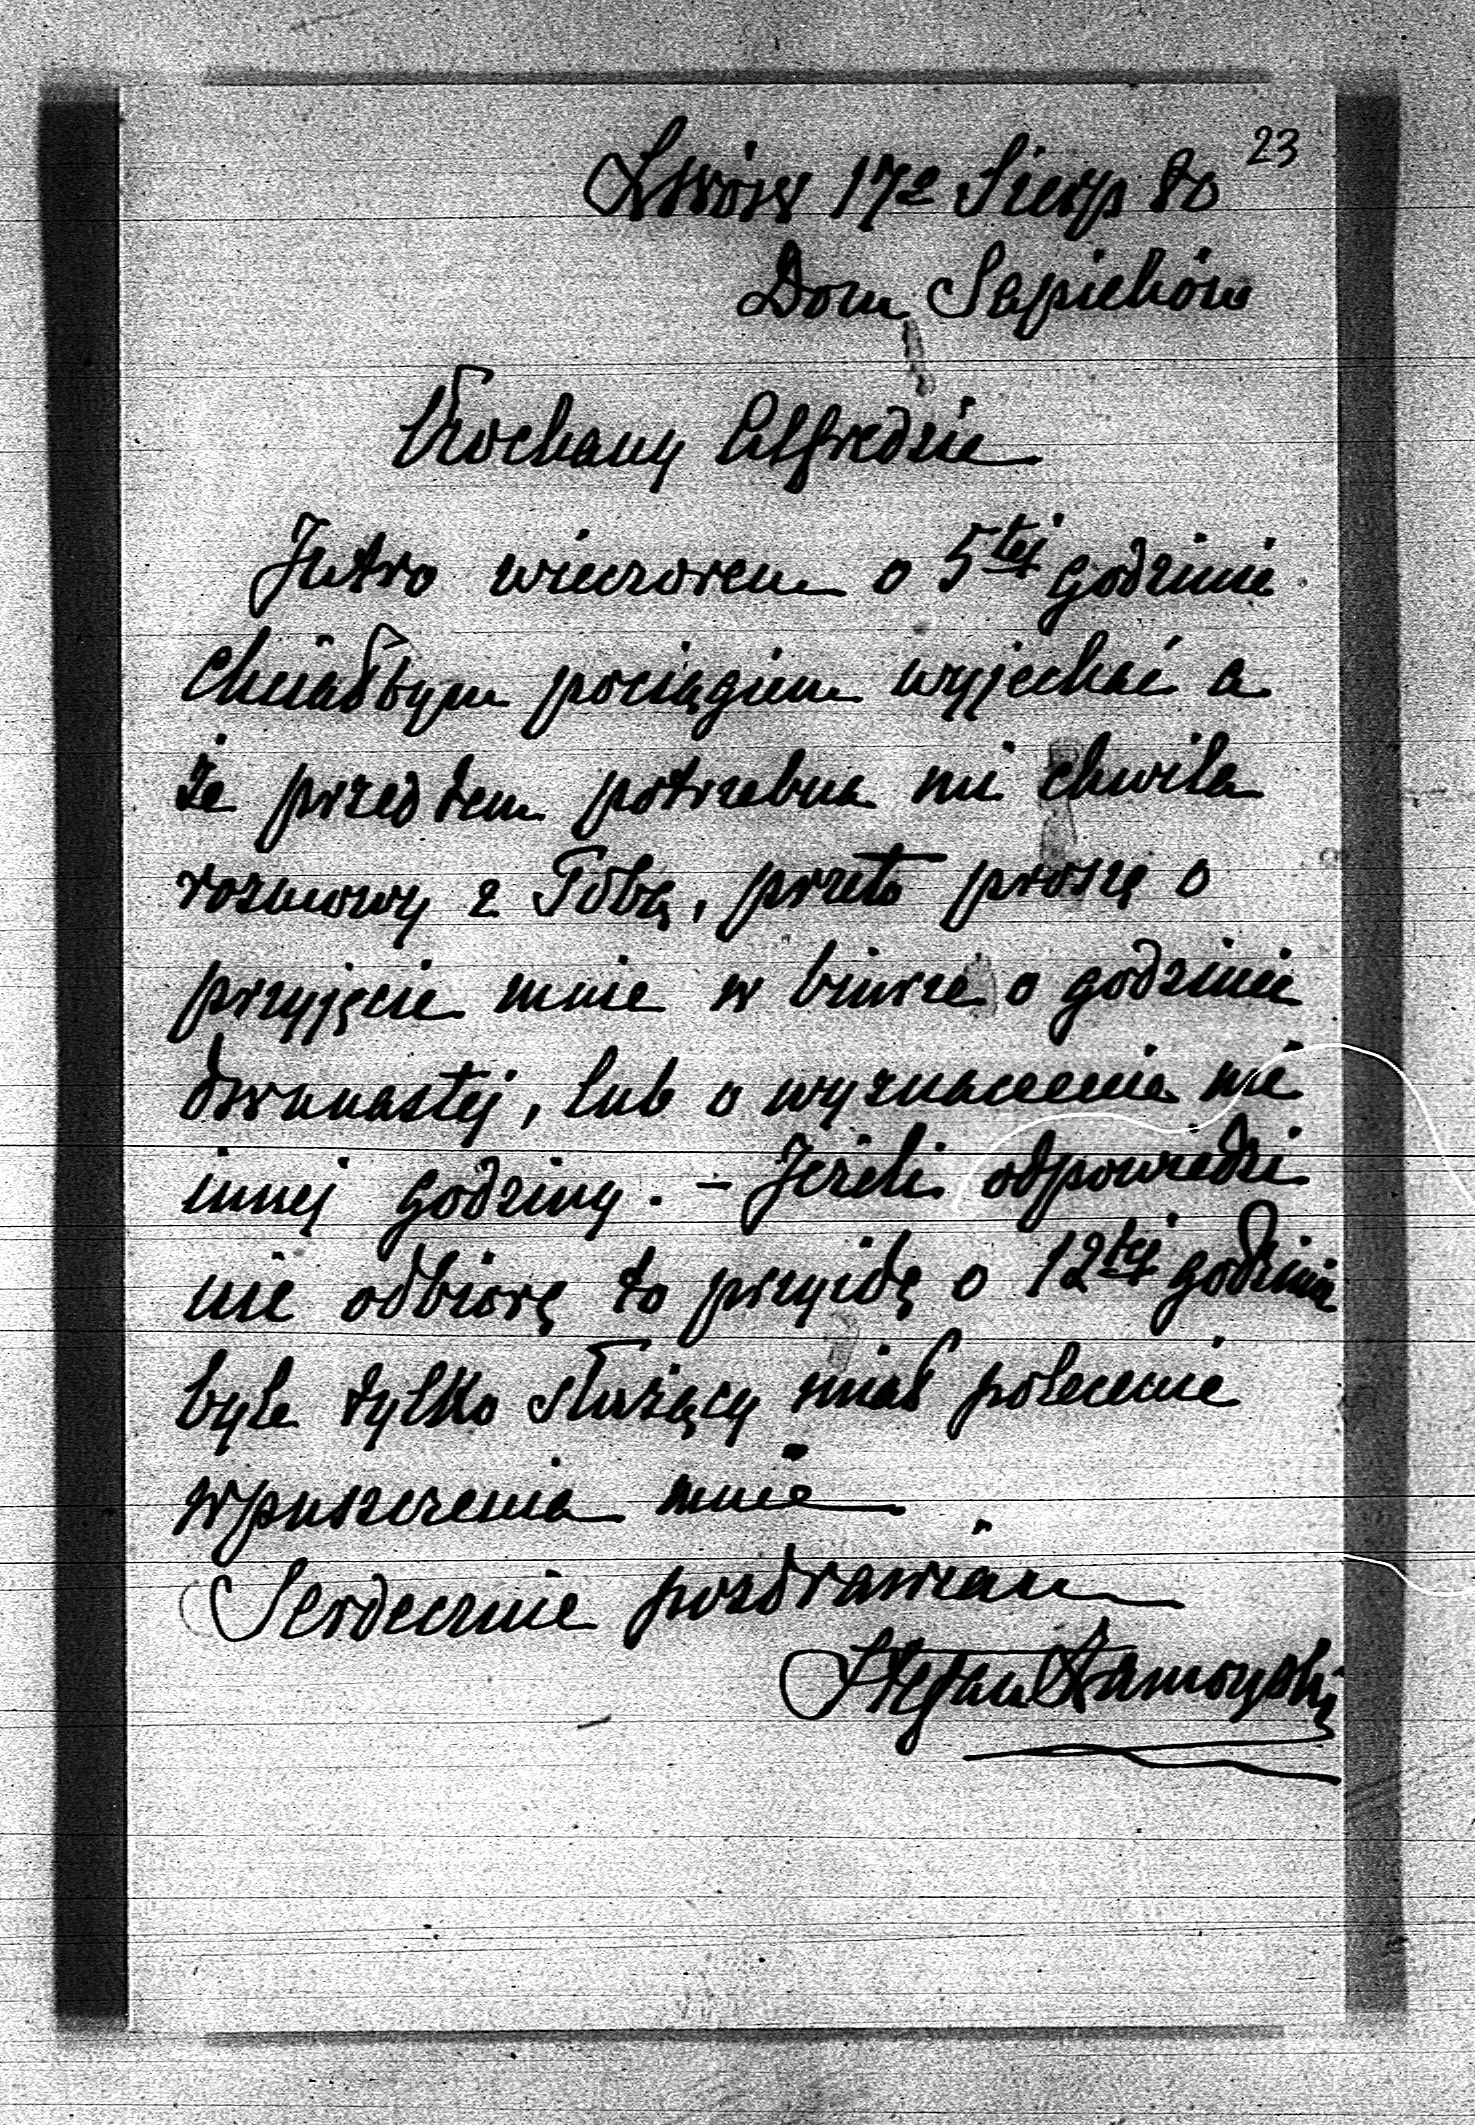 23
Lwów 17º Sierp 80
Dom Sapiehów
Kochany Alfredzie
Jutro wieczorem o 5tej godzinie
chciałbym pociągiem wyjechać a
że przed tem potrzebna mi chwila
rozmowy z Tobą, przeto proszę o
przyjęcie mnie w biurze o godzinie
dwunastej, lub o wyznaczenie mi
innej godziny. – Jeżeli odpowiedzi
nie odbiorę to przyidę o 12tej godzinie
byle tylko służący miał polecenie
wpuszczenia mnie
Serdecznie pozdrawiam
Stefan Zamoyski